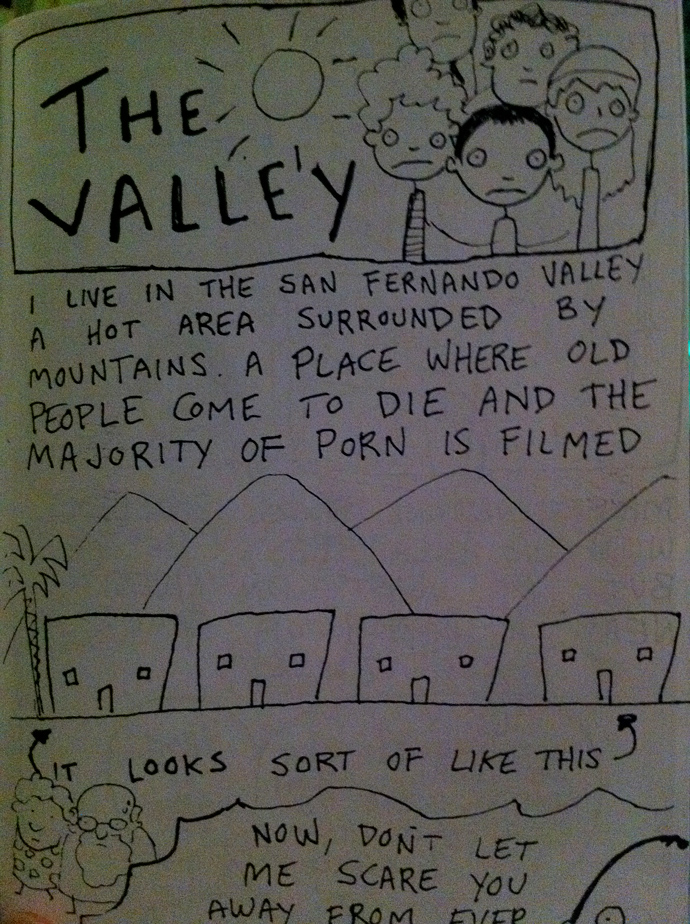 THE
VALLEY
I LIVE IN THE SAN FERNANDO VALLEY
A HOT AREA SURROUNDED BY
MOUNTAINS. A PLACE WHERE OLD
PEOPLE COME TO DIE AND THE
MAJORITY OF PORN IS FILMED
IT LOOKS SORT OF LIKE THIS
NOW, DON'T LET
ME SCARE YOU
AWAY FROM EVER